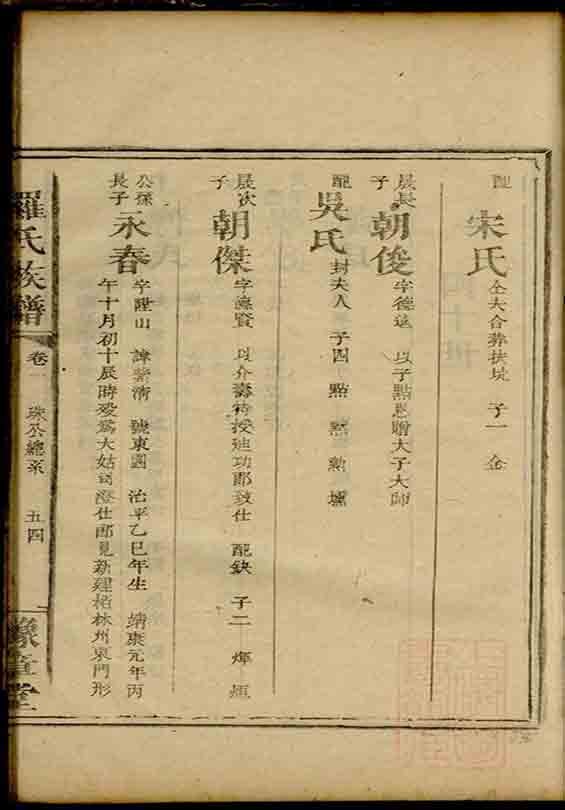 配 宋氏 仝夫合葬扶坑 子一 企
晟長子 朝俊 字德遠 以子點恩贈大子大師
配 吳氏 封夫人 子四 點 㸃 勳 爐
晟次子 朝傑 字德賢 以介壽待授迪功郎致仕 配缺 子二 煇 烜
公孫長子 永春 字陞山 諱紫清 號東園 治平乙巳年生 靖康元年丙
午十月初十辰時歿爲大姑司澄仕郎見新建栢林州東門形
羅氏族譜 卷一 珠公總系 五四 豫章堂